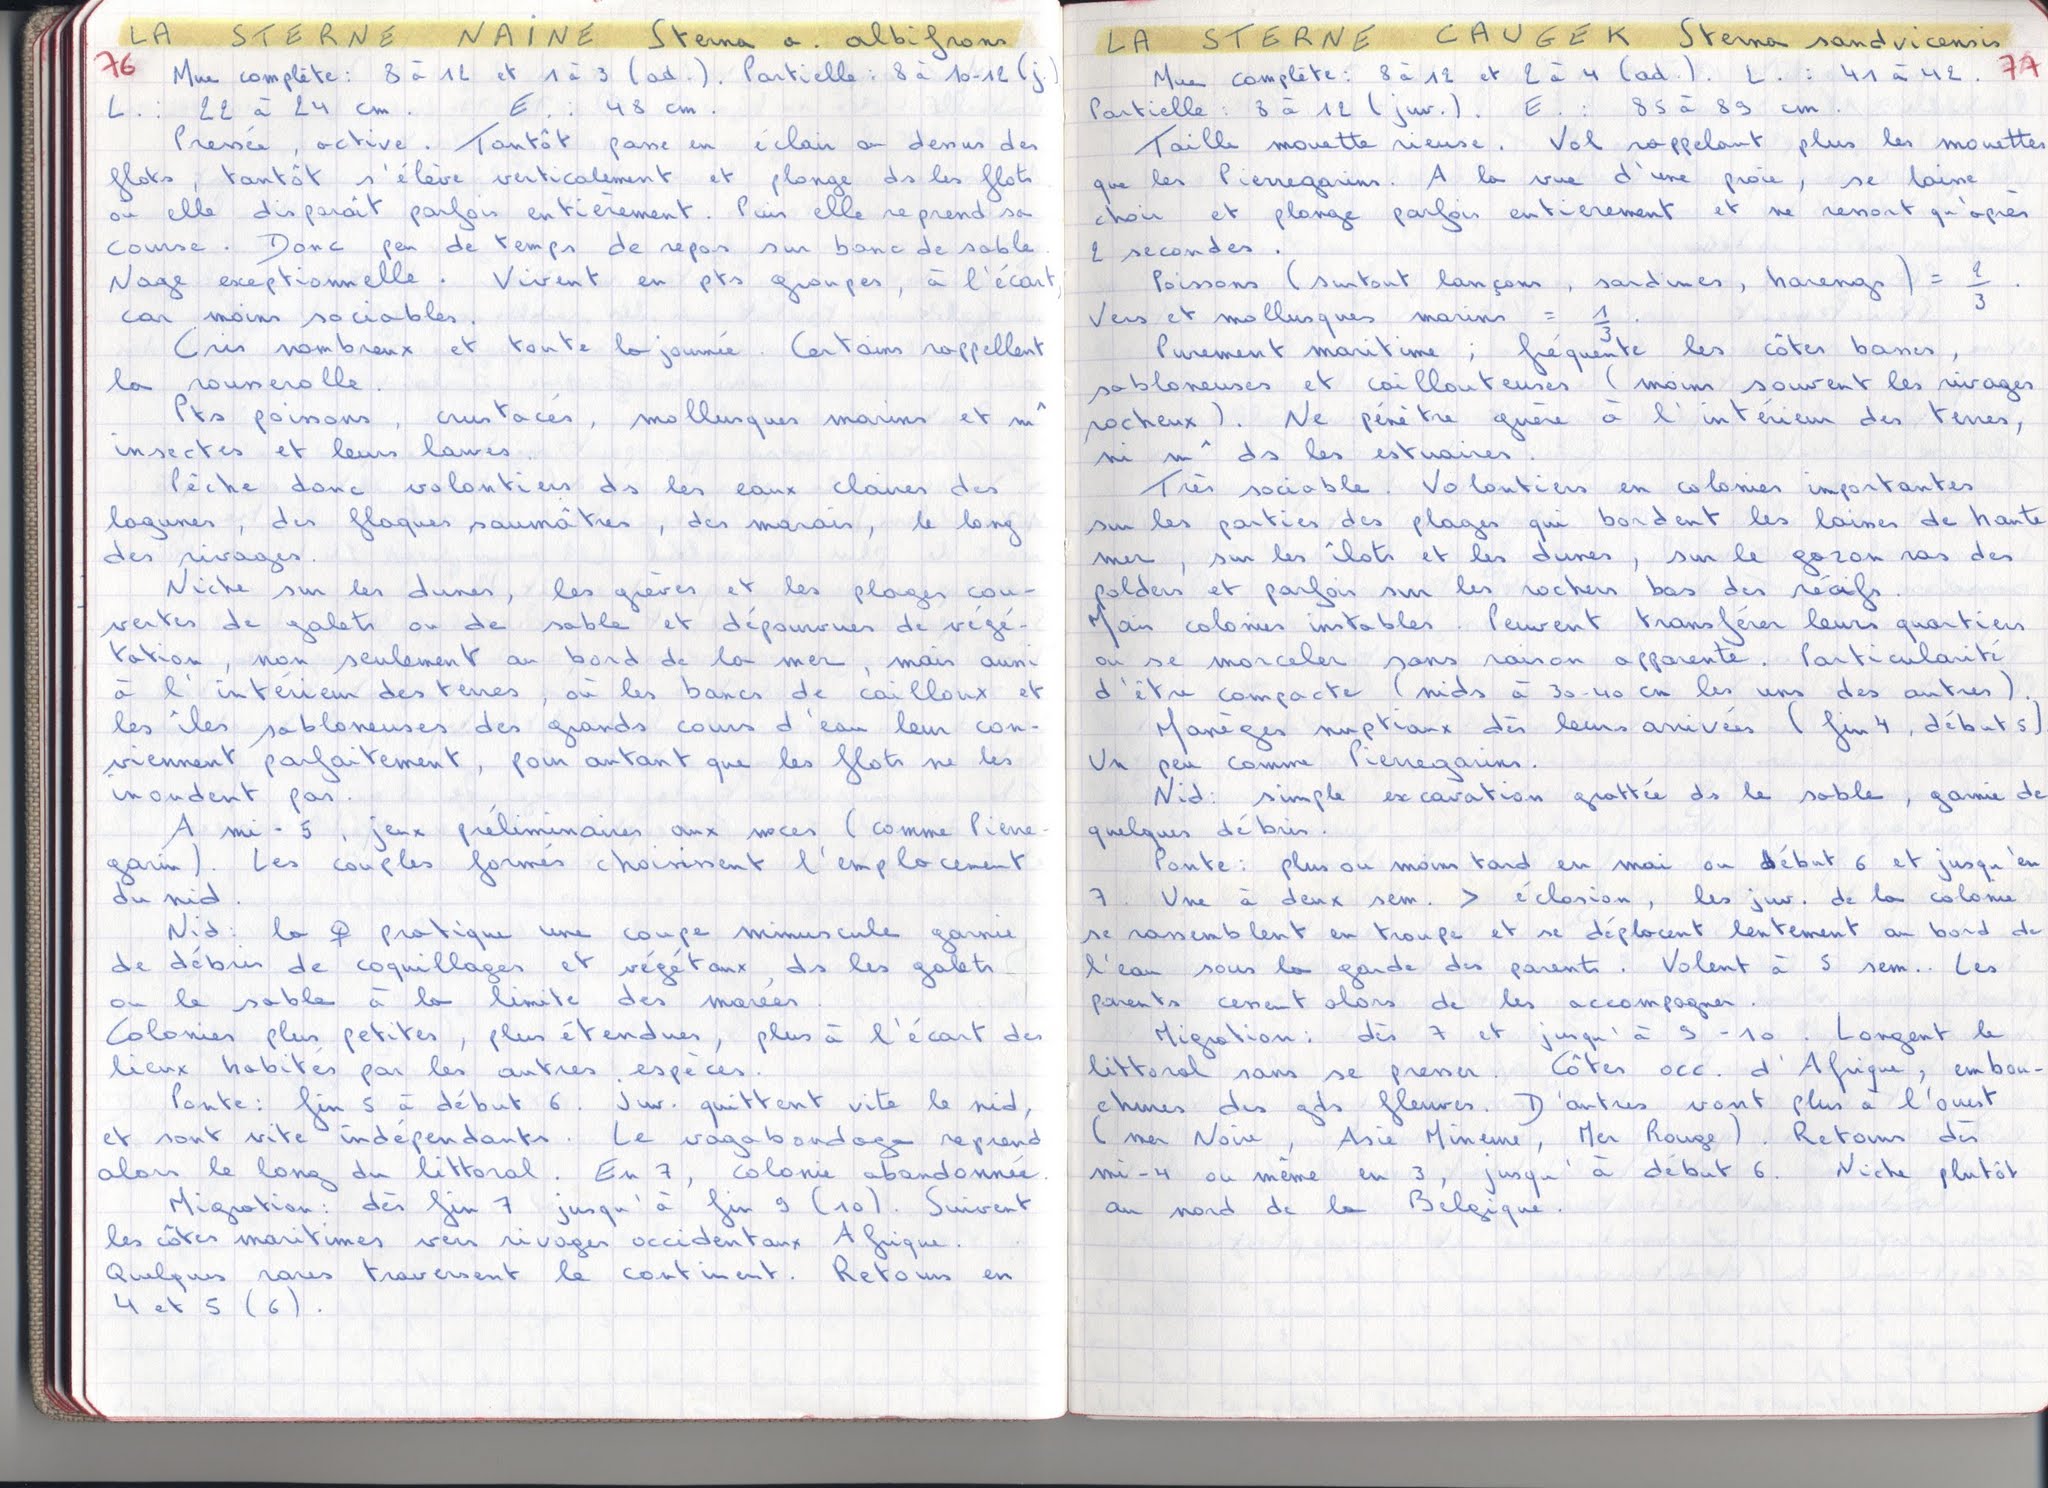 LA STERNE NAINE Sterna a. albifrons
76
Mue complète : 8 à 12 et 1 à 3 (ad.). Partielle : 8 à 10-12 (j.)
L. : 22 à 24 cm. E. : 48 cm.
Pressée, active. Tantôt passe en éclair au dessus des
flots, tantôt s'élève verticalement et plonge ds les flots
où elle disparaît parfois entièrement. Puis elle reprend sa
course. Donc peu de temps de repos sur banc de sable.
Nage exceptionnelle. Vivent en pts groupes, à l'écart,
car moins sociables.
Cris nombreux et toute la journée. Certains rappellent
la rousserolle.
Pts poissons, crustacés, mollusques marins et m^
insectes et leurs larves.
Pêche donc volontiers ds les eaux claires des
lagunes, des flaques saumâtres, des marais, le long
des rivages.
Niche sur les dunes, les grèves et les plages cou-
vertes de galets ou de sable et dépourvues de végé-
tation, non seulement au bord de la mer, mais aussi
à l'intérieur des terres, où les bancs de cailloux et
les îles sabloneuses des grands cours d'eau leur con-
viennent parfaitement, pour autant que les flots ne les
inondent pas.
A mi-5, jeux préliminaires aux noces (comme Pierre-
garin). Les couples formés choisissent l'emplacement
du nid.
Nid : la ♀ pratique une coupe minuscule garnie
de débris de coquillages et végétaux ds les galets
ou le sable à la limite des marées.
Colonies plus petites, plus étendues, plus à l'écart des
lieux habités par les autres espèces.
Ponte : fin 5 à début 6. Juv. quittent vite le nid,
et sont vite indépendants. Le vagabondage reprend
alors le long du littoral. En 7, colonie abandonnée.
Migration : dès fin 7 jusqu'à fin 9 (10). Suivent
les côtes maritimes vers rivages occidentaux Afrique.
Quelques rares traversent le continent. Retours en
4 et 5 (6).
LA STERNE CAUGEK Sterna sandvicensis
Mue complète : 8 à 12 et 2 à 4 (ad.). L. : 41 à 42. 77
Partielle : 8 à 12 (juv.). E. : 85 à 89 cm.
Taille mouette rieuse. Vol rappelant plus les mouettes
que les Pierregarins. A la vue d'une proie, se laisse
choir et plonge parfois entièrement et ne ressort qu'après
2 secondes.
Poissons (surtout lançons, sardines, harengs) = 2/3.
Vers et mollusques marins = 1/3.
Purement maritime ; fréquente les côtes basses,
sabloneuses et caillouteuses (moins souvent les rivages
rocheux). Ne pénètre guère à l'intérieur des terres,
ni m^ ds les estuaires.
Très sociable. Volontiers en colonies importantes
sur les parties des plages qui bordent les laisses de haute
mer, sur les îlots et les dunes, sur le gazon ras des
polders et parfois sur les rochers bas des récifs.
Mais colonies instables. Peuvent transférer leurs quartiers
ou se morceler sans raison apparente. Particularité
d'être compacte (nids à 30-40 cm les uns des autres).
Manèges nuptiaux dès leurs arrivées (fin 4, début 5)
Un peu comme Pierregarins.
Nid : simple excavation grattée ds le sable, garnie de
quelques débris.
Ponte : plus ou moins tard en mai ou début 6 et jusqu'en
7. Une à deux sem. > éclosion, les juv. de la colonie
se rassemblent en troupe et se déplacent lentement au bord de
l'eau sous la garde des parents. Volent à 5 sem.. Les
parents cessent alors de les accompagner.
Migration : dès 7 et jusqu'à 9-10. Longent le
littoral sans se presser. Côtes occ. d'Afrique, embou-
chures des gds fleuves. D'autres vont plus à l'ouest
(mer Noire, Asie Mineure, Mer Rouge). Retours dès
mi-4 ou même en 3, jusqu'à début 6. Niche plutôt
au nord de la Belgique.